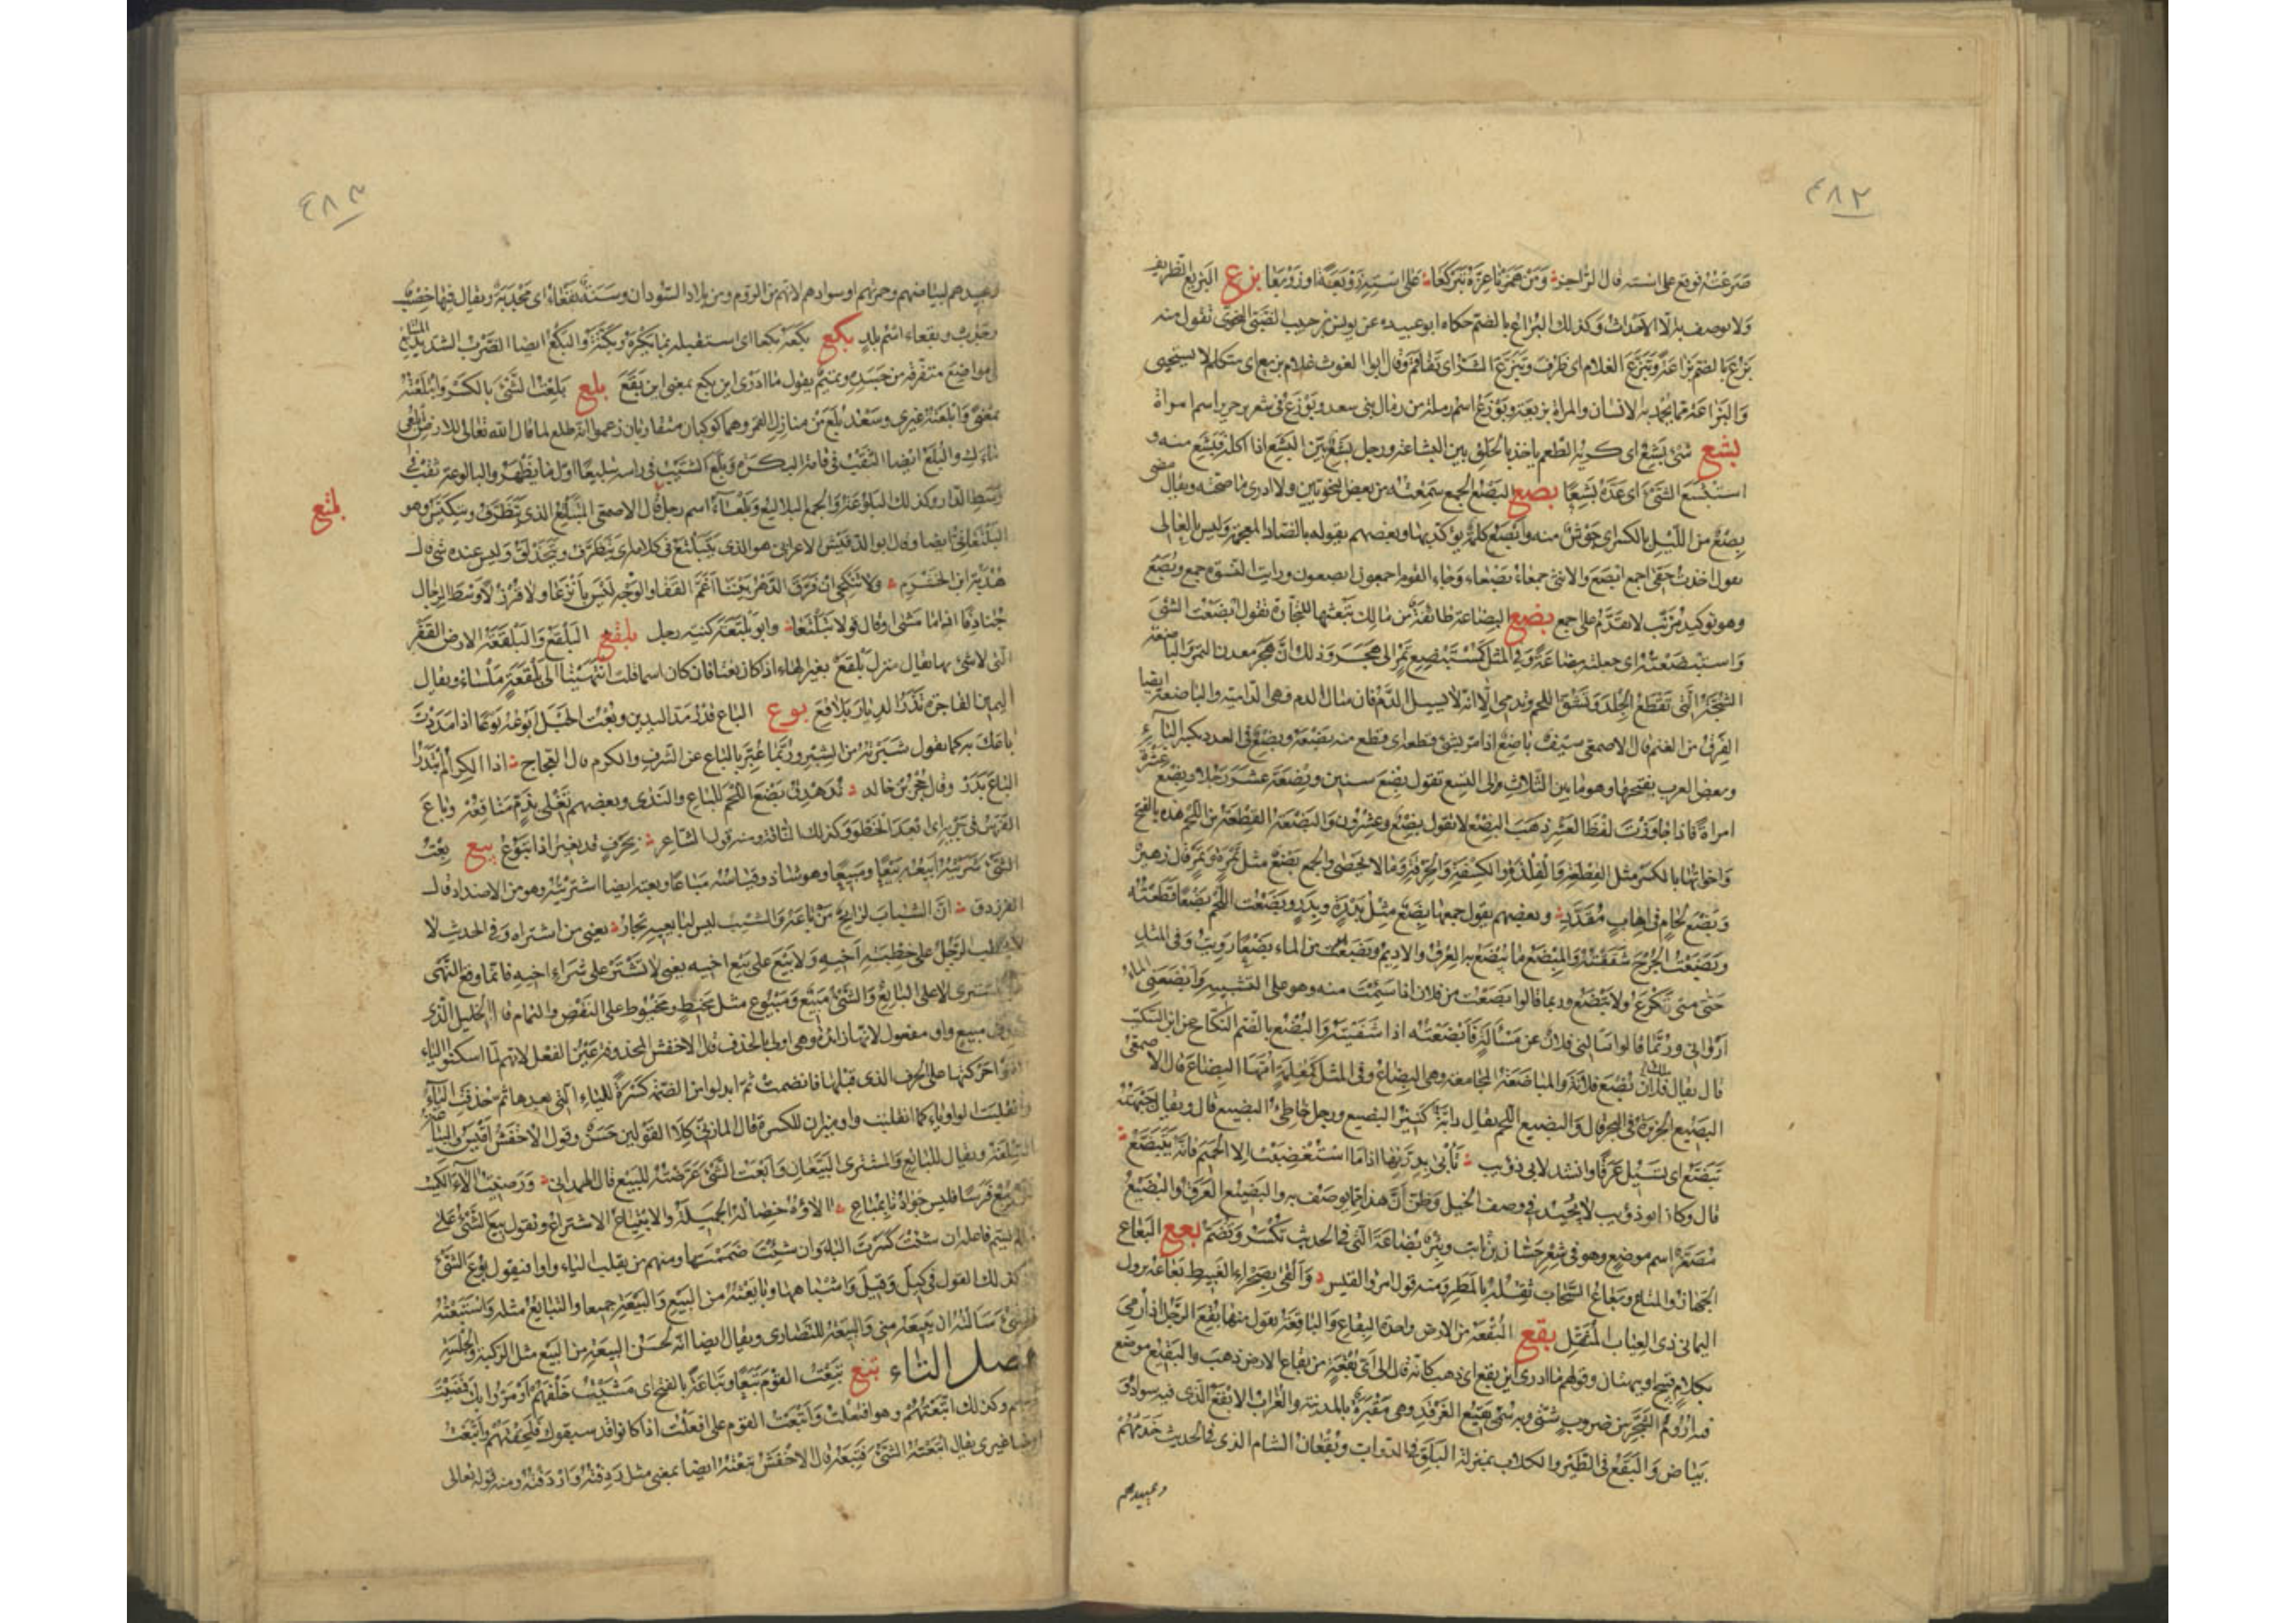 ٤٨٢
صرعته فوقع على استه قال الراجز ومن همزنا عزه تبركعا على استه زوبعة او زوبعا بزع البزيع الظريف
ولا يوصف به الا الاحداث وكذلك البزاع بالضم حكاه ابو عبيدة عن يونس بن حبيب الضبى النحوى تقول منه
بزع بالضم بزاعة وتبزع الغلام اى ظرف وتبزع الشر اى تفاقم وقال ابو الغوث غلام بزيع اى متكلم لا يستحيى
والبزاعة مما يحمد به الانسان والمراة بزيعة وبوزع اسم رملة من رمال بنى سعد وبوزع فى شعر جرير اسم امراة
بشع شئ بشع اى كريه الطعم ياخذ بالحلق بين البشاعة ورجل بشع بين البشع اذا اكله فبشع منه و
استبشع الشئ اى عده بشعا بصع البصع الجمع سمعته من بعض النحويين ولا ادرى ما صحته ويقال مضى
بصع من الليل بالكسر اى جوش منه وابصع كلمة يؤكد بها وبعضهم يقوله بالضاد المعجمة وليس بالعالى
تقول اخذت حقى اجمع ابصع والانثى جمعاء بصعاء وجاء القوم اجمعون ابصعون ورايت النسوة جمع وبصع
وهو توكيد مرتب لا يقدم على اجمع بضع البضاعة طائفة من مالك تبعثها للتجارة تقول ابضعت الشئ
واستبضعته اى جعلته بضاعة وفى المثل كمستبضع تمر الى هجر وذلك ان هجر معدن التمر والباضعة
الشجة التى تقطع الجلد وتشق اللحم وتدمى الا انه لا يسيل الدم فان سال الدم فهى الدامية والباضعة ايضا
الفرق من الغنم قال الاصمعى سيف باضع اذا مر بشئ قطعه اى قطع منه بضعة وبضع فى العدد بكسر الباء
وبعض العرب يفتحها وهو ما بين الثلاث الى التسع تقول بضع سنين وبضعة عشر رجلا وبضع عشرة
امراة فاذا جاوزت لفظ العشر ذهب البضع لا تقول بضع وعشرون والبضعة القطعة من اللحم هذه بالفتح
واخواتها بالكسر مثل القطعة والفلذة والكسفة والخرقة وما لا يحصى والجمع بضع مثل تمرة وتمر قال زهير
وبضع لحام فى اهاب مقدد وبعضهم يقول جمعها بضع مثل بدرة وبدر وبضعت اللحم بضعا قطعته
وبضعت الجرح شققته والمبضع ما يبضع به العرق والاديم وبضعت من الماء بضعا رويت وفى المثل
حتى متى تكرع ولا تبضع وربما قالوا بضعت من فلان اذا سئمت منه وهو على التشبيه وابضعنى الماء
ارواني وربما قالوا سالنى فلان عن مسألة فابضعته اذا شفيته والبضع بالضم النكاح عن ابن السكيت
قال يقال ملك فلان بضع فلانة والمباضعة المجامعة وهى البضاع وفى المثل كمعلمة امها البضاع قال الاصمعى
البضيع الجزيرة فى البحر قال والبضيع اللحم يقال دابة كثير البضيع ورجل خاظى البضيع قال ويقال جبهته
تبضع اى تسيل عرقا وانشد لابى ذؤيب تأبى بدرتها اذا ما استغضبت الا الحميم فانه يتبضع
قال وكان ابو ذؤيب لا يجيد فى وصف الخيل وظن ان هذا مما يوصف به والبضيع العرق والبضيع
مصغرا اسم موضع وهو فى شعر حسان بن ثابت وبئر بضاعة التى فى الحديث تكسر وتضم بعع البعاع
الجهاز والمتاع وبعاع السحاب ثقله بالمطر ومنه قول امرؤ القيس والقى بصحراء الغبيط بعاعه نزول
اليمانى ذى العياب المثقل بقع البقعة من الارض واحدة البقاع والباقعة تقول منها بقع الرجل اذا رمى
بكلام قبيح او بهتان وقولهم ما ادرى اين بقع اى ذهب كانه قال الى اى بقعة من بقاع الارض ذهب والبقيع موضع
فيه اروم الشجر من ضروب شتى وبه سمى بقيع الغرقد وهى مقبرة بالمدينة والغراب الابقع الذى فيه سواد و
بياض والبقع فى الطير والكلاب بمنزلة البلق فى الدواب وبقعان الشام الذى فى الحديث خدمهم
وعبيدهم
٤٨٣
وعبيدهم لبياضهم وحمرتهم او سوادهم لانهم من الروم ومن بلاد السودان وسنة بقعاء اى مجدبة ويقال فيها خصب
وجدب وبقعاء اسم بلد بكع بكعه بكعا اى استقبله بما يكره وبكته والبكع ايضا الضرب الشديد المتتابع
فى مواضع متفرقة من جسده وتميم يقول ما ادرى اين بكع بمعنى اين بقع بلع بلعت الشئ بالكسر وابتلعته
بمعنى وابلعته غيرى وسعد بلع من منازل القمر وهما كوكبان متقاربان زعموا انه طلع لما قال الله تعالى للارض ابلعى
ماءك والبلع ايضا الثقب فى قامة البكرة وبلع الشيب فى راسه تبليعا اول ما يظهر والبالوعة ثقب فى
وسط الدار وكذلك البلوعة والجمع البلاليع وبلعاء اسم رجل قال الاصمعى المتبلتع الذى يتظرف ويتكيس وهو
بلتع
البلتعانى ايضا وقال ابو الدقيش الاعرابى هو الذى يتبلتع فى كلامه اى يتظرف ويتحذلق وليس عنده شئ قال
هدبة ابن الخشرم ولا تنكحى ان فرق الدهر بيننا اغم القفا والوجه ليس بانزعا ولا قرزلا وسط الرجال
جنادفا اذا ما مشى او قال قولا تبلتعا وابو بلتعة كنية رجل بلقع البلقع والبلقعة الارض القفر
التى لا شئ بها يقال منزل بلقع بغير الهاء اذا كان نعتا فان كان اسما قلت انتهينا الى بلقعة ملساء ويقال
اليمين الفاجرة تذر الديار بلاقع بوع الباع قدر مد اليدين وبعت الحبل ابوعه بوعا اذا مددت
باعك به كما يقول شبرته من الشبر وربما عبر بالباع عن الشرف والكرم قال العجاج اذا الكرام ابتدروا
الباع بدر وقال حجر بن خالد ندهدق بضع اللحم للباع والندى وبعضهم تغلى بذم مناقعه وباع
الفرس فى جريه اى ابعد الخطو وكذلك الناقة ومنه قول الشاعر بحرف قد تغير اذا تبوع بيع بعت
الشئ شريته ابيعه بيعا ومبيعا وهو شاذ وقياسه مباعا وبعته ايضا اشتريته وهو من الاضداد قال
الفرزدق ان الشباب لرابح من باعه والشيب ليس لبايعيه تجار يعنى من اشتراه وفى الحديث لا
يخطب الرجل على خطبة اخيه ولا يبيع على بيع اخيه يعنى لا تشتر على شراء اخيه فانما وقع النهى
على المشترى لا على البايع والشئ مبيع ومبيوع مثل مخيط ومخيوط على النقص والتمام قال الخليل الذى
حذف من مبيع واو مفعول لانها زائدة وهى اولى بالحذف قال الاخفش المحذوفة عين الفعل لانهم لما اسكنوا الياء
القوا حركتها على الحرف الذى قبلها فانضمت ثم ابدلوا من الضمة كسرة للياء التى بعدها ثم حذفت الياء
وانقلبت الواو ياء كما انقلبت واو ميزان للكسرة قال المازنى كلا القولين حسن وقول الاخفش اقيس والبياعة
السلعة ويقال للبائع والمشترى البيعان وابعت الشئ عرضته للبيع قال الهمدانى ورضيت الاء الكميت
فمن يبع فرسا فليس جوادنا بمباع الاؤه خصاله الجميلة والابتياع الاشتراء وتقول بيع الشئ على
ما لم يسم فاعله ان شئت كسرت الباء وان شئت ضممتها ومنهم من يقلب الياء واوا فيقول بوع الشئ
كذلك القول فى كيل وقيل واشباهها وبايعته من البيع والبيعة جميعا والتبايع مثله واستبعته
الشئ سالته ان يبيعه منى والبيعة للنصارى ويقال ايضا انه لحسن البيعة من البيع مثل الركبة والجلسة
فصل التاء تبع تبعت القوم تبعا وتباعة بالفتح اى مشيت خلفهم او مروا بك فمضيت
معهم وكذلك اتبعتهم وهو افتعلت واتبعت القوم على افعلت اذا كانوا قد سبقوك فلحقتهم واتبعت
ايضا غيرى يقال اتبعته الشئ فتبعه قال الاخفش تبعته واتبعته ايضا بمعنى مثل ردفته واردفته ومنه قوله تعالى